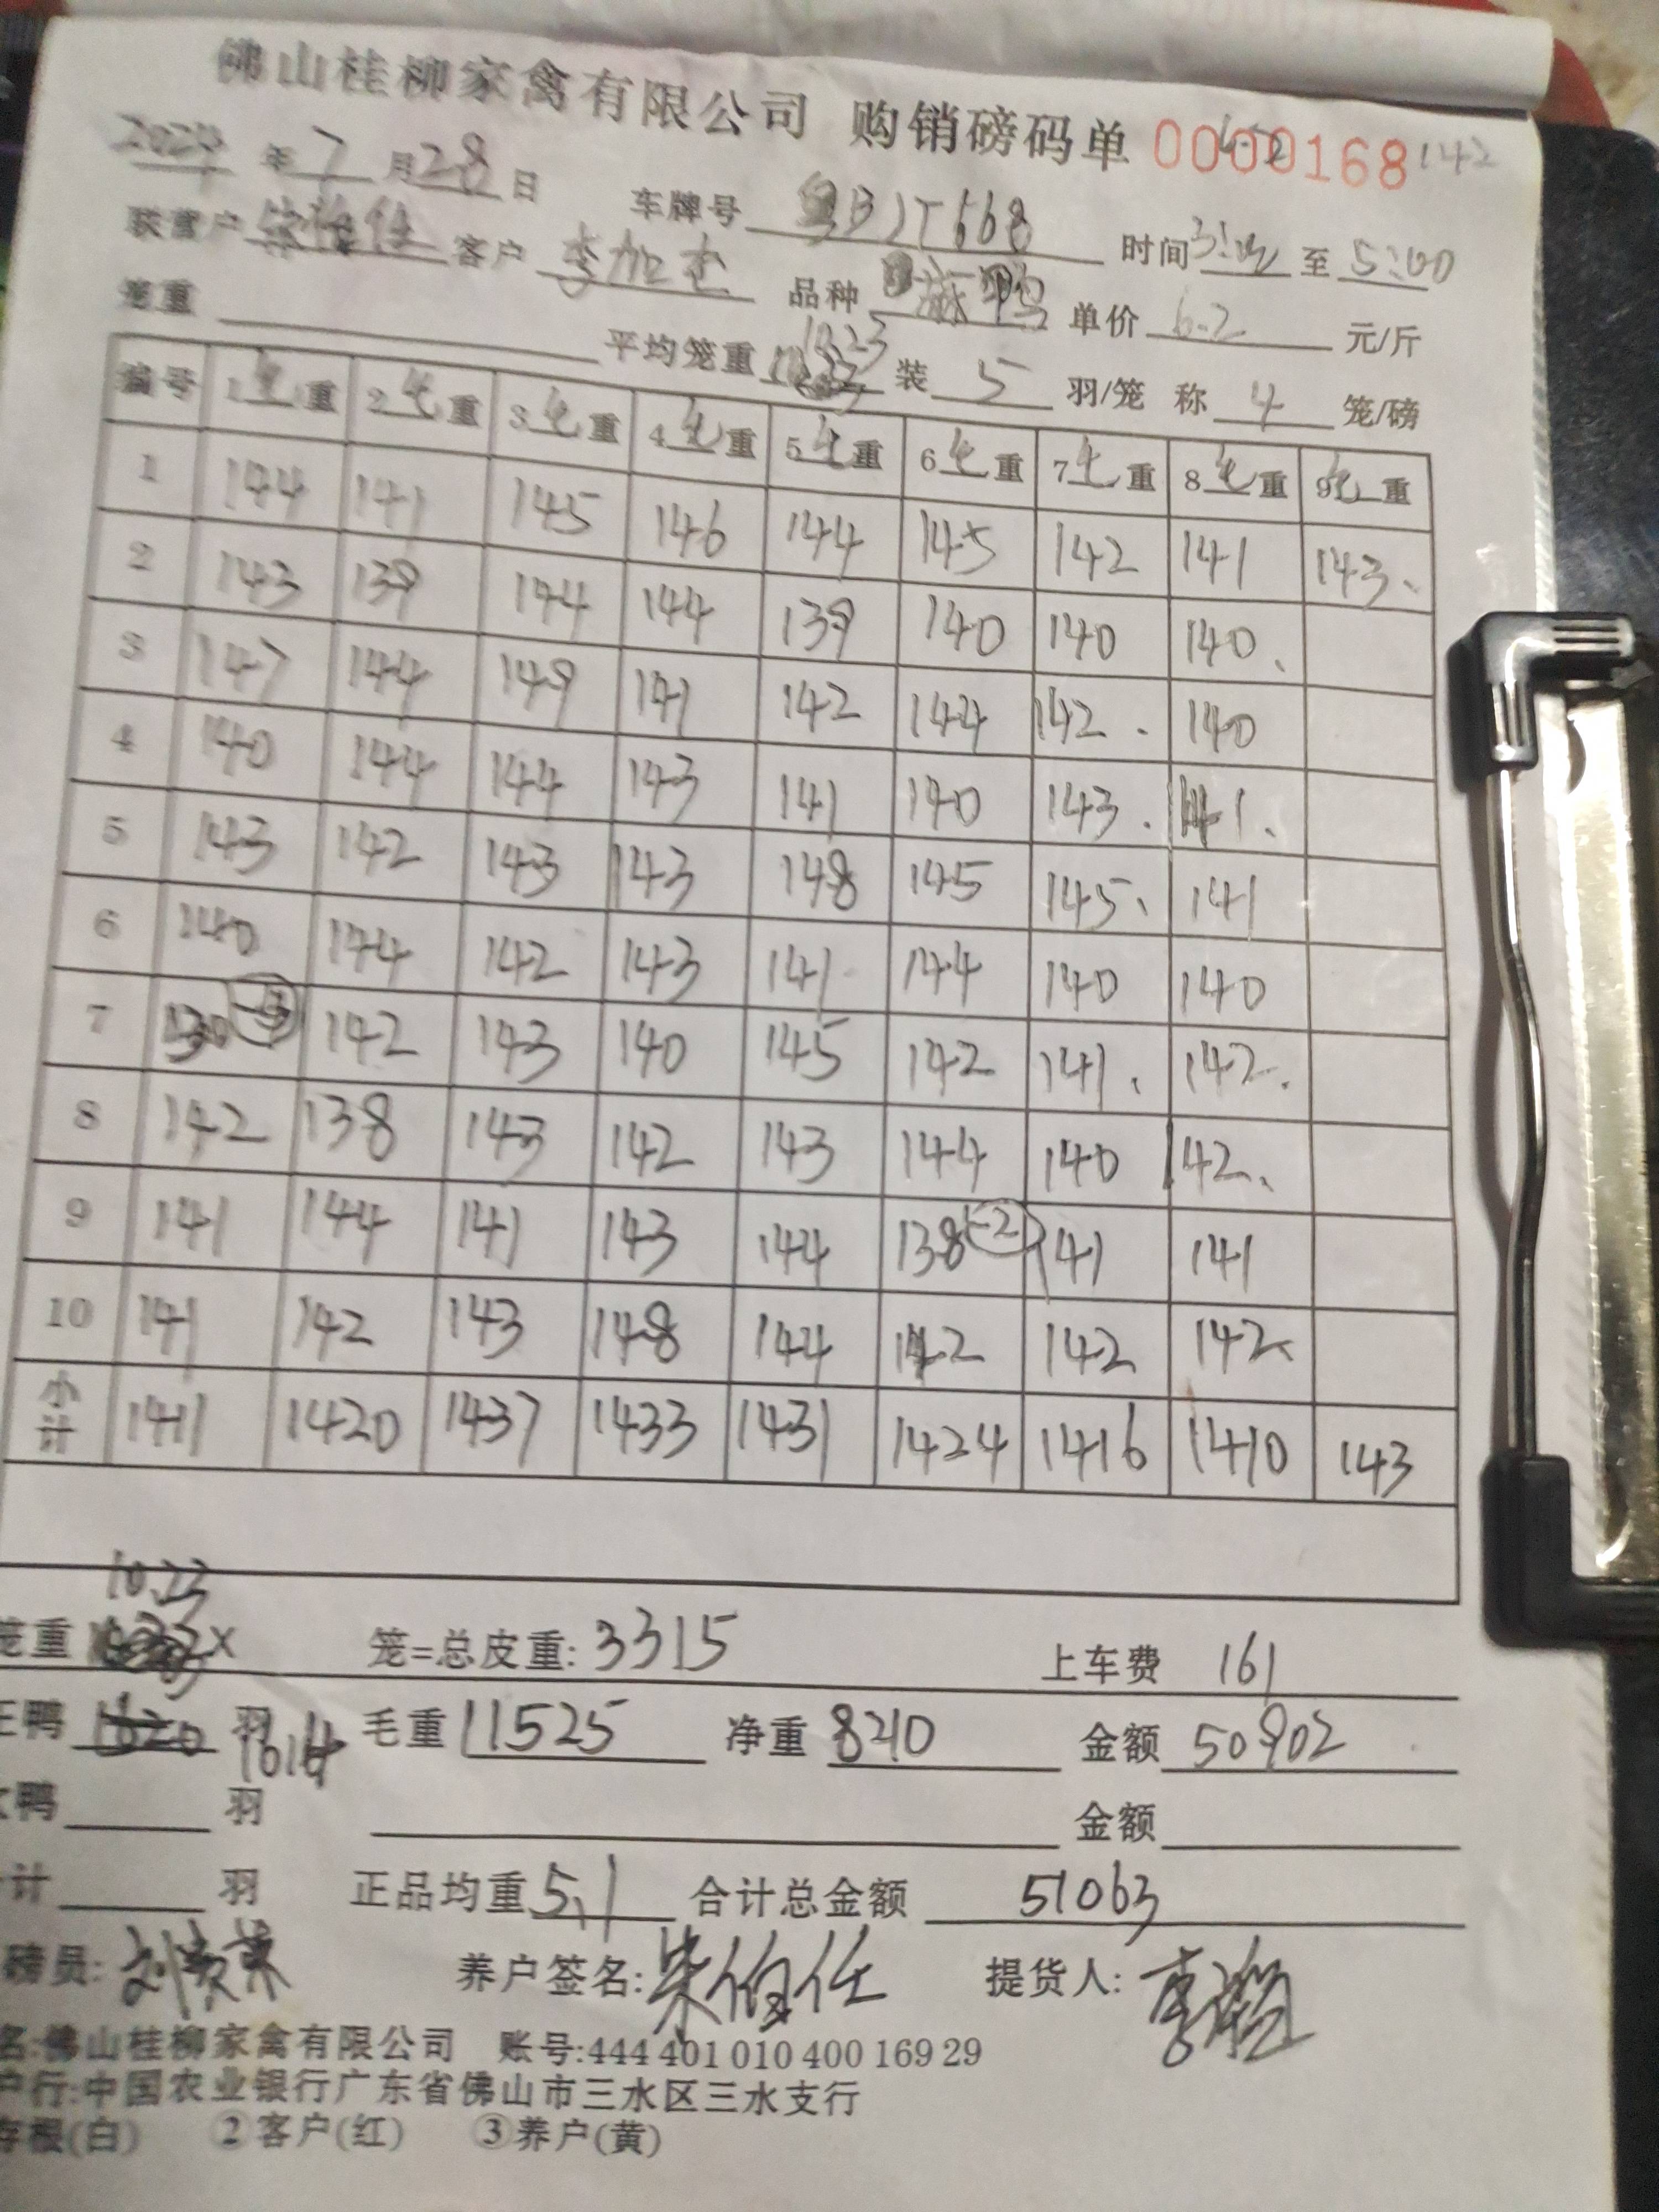 佛山桂柳家禽有限公司 购销磅码单 0000168 142
2024年7月28日 车牌号 粤B 668 时间 3: 至 5:00
联营户 客户 李加 品种 麻鸭 单价 6.2 元/斤
笼重 平均笼重 10.23 装 5 羽/笼 称 4 笼/磅
编号 1毛重 2毛重 3毛重 4毛重 5毛重 6毛重 7毛重 8毛重 9毛重
1 144 141 145 146 144 145 142 141 143
2 143 139 144 144 139 140 140 140
3 147 144 149 141 142 144 142 140
4 140 144 144 143 141 140 143 141
5 143 142 143 143 148 145 145 141
6 140 144 142 143 141 144 140 140
7 130 142 143 140 145 142 141 142
8 142 138 143 142 143 144 140 142
9 141 144 141 143 144 138 (-2) 141 141
10 141 142 143 148 144 142 142 142
小计 1411 1420 1437 1433 1431 1424 1416 1410 143
笼重 10.23 X 笼=总皮重: 3315 上车费 161
鸭 1614 羽 毛重 11525 净重 8210 金额 50902
鸭 羽 金额
计 羽 正品均重 5.1 合计总金额 51063
磅员: 养户签名: 朱伯任 提货人: 李
名:佛山桂柳家禽有限公司 账号:444 401 010 400 169 29
户行:中国农业银行广东省佛山市三水区三水支行
存根(白) ②客户(红) ③养户(黄)